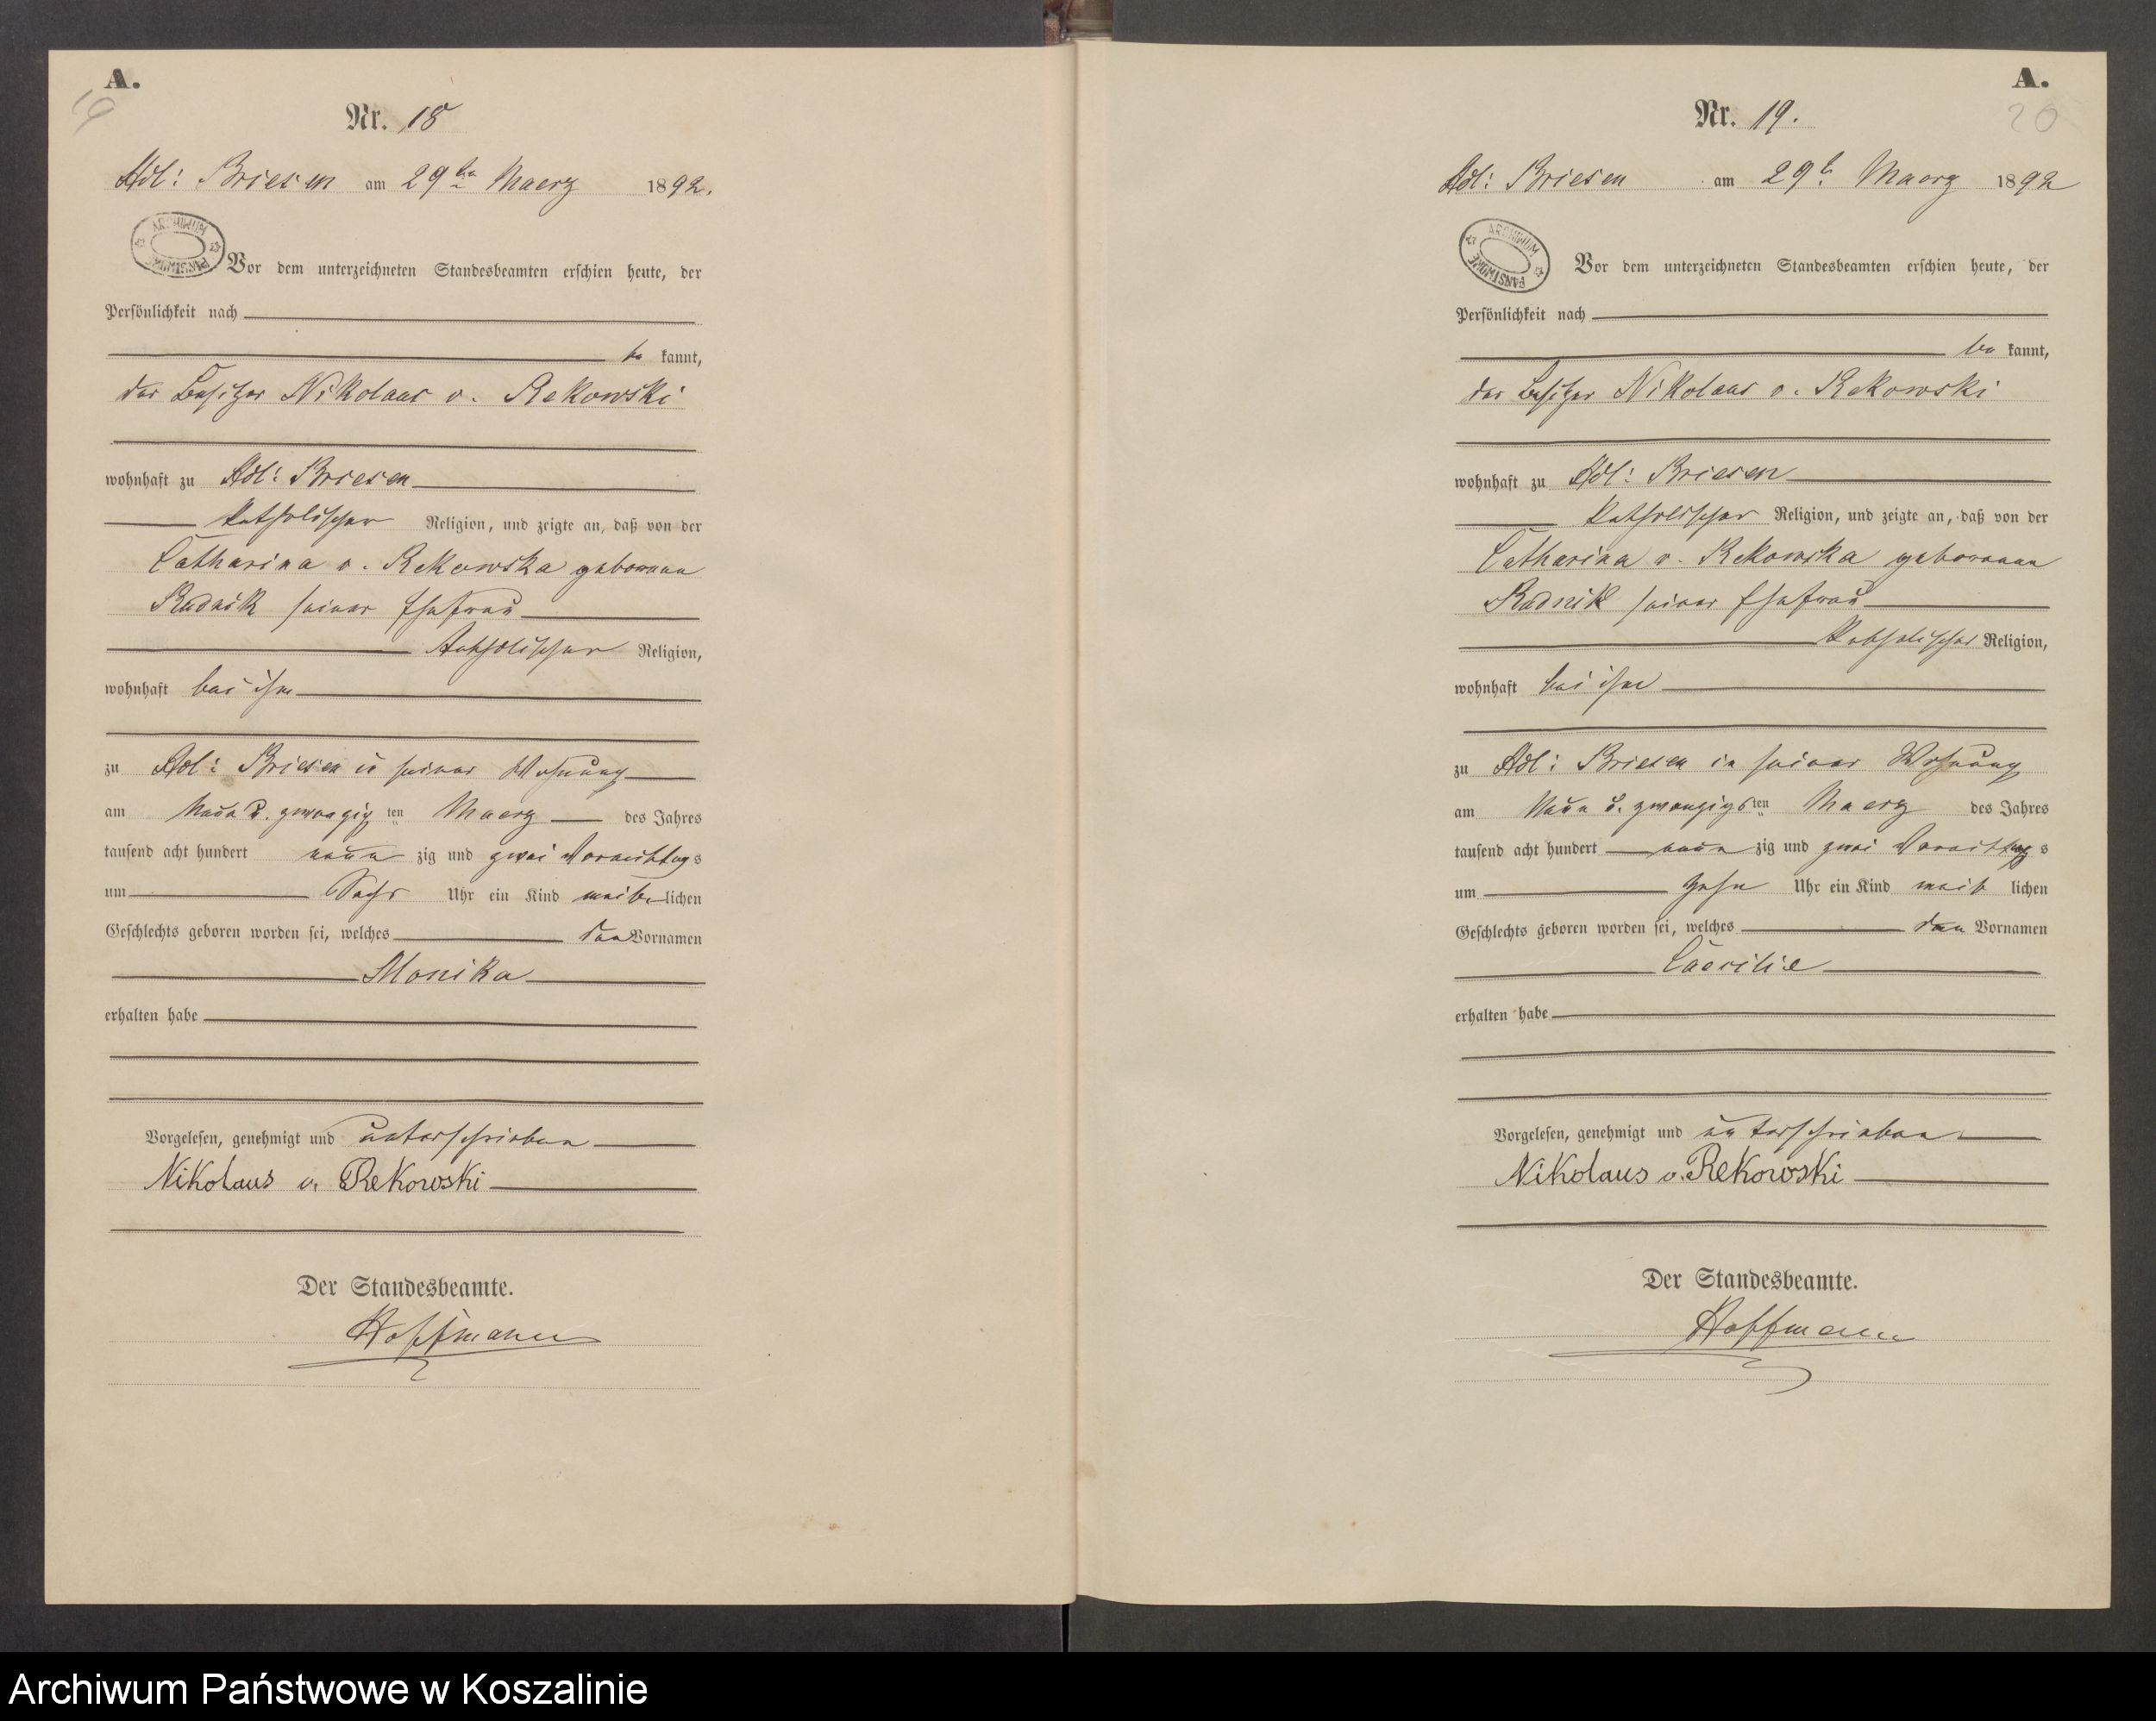 A.
19
Nr. 18
Adl: Briesen am 29ten Maerz 1892.
ARCHIWUM PAŃSTWOWE
Vor dem unterzeichneten Standesbeamten erschien heute, der
Persönlichkeit nach
be kannt,
der Besitzer Nikolaus v. Rekowski
wohnhaft zu Adl: Briesen
katholischer Religion, und zeigte an, daß von der
Catharina v. Rekowska geborenen
Radnik seiner Ehefrau
katholischer Religion,
wohnhaft bei ihm
zu Adl: Briesen in seiner Wohnung
am Neun u. zwanzig ten Maerz des Jahres
tausend acht hundert neun zig und zwei Vormittags
um Sechs Uhr ein Kind weib lichen
Geschlechts geboren worden sei, welches den Vornamen
Monika
erhalten habe
Vorgelesen, genehmigt und unterschrieben
Nikolaus v. Rekowski
Der Standesbeamte.
Hoffmann
A.
20
Nr. 19.
Adl: Briesen am 29t. Maerz 1892
ARCHIWUM PAŃSTWOWE
Vor dem unterzeichneten Standesbeamten erschien heute, der
Persönlichkeit nach
be kannt,
der Besitzer Nikolaus v. Rekowski
wohnhaft zu Adl: Briesen
katholischer Religion, und zeigte an, daß von der
Catharina v. Rekowska geborenen
Radnik seiner Ehefrau
katholischer Religion,
wohnhaft bei ihm
zu Adl: Briesen in seiner Wohnung
am Neun u. zwanzigs ten Maerz des Jahres
tausend acht hundert neun zig und zwei Vormittags
um zehn Uhr ein Kind weib lichen
Geschlechts geboren worden sei, welches den Vornamen
Caecilie
erhalten habe
Vorgelesen, genehmigt und unterschrieben
Nikolaus v. Rekowski
Der Standesbeamte.
Hoffmann
Archiwum Państwowe w Koszalinie